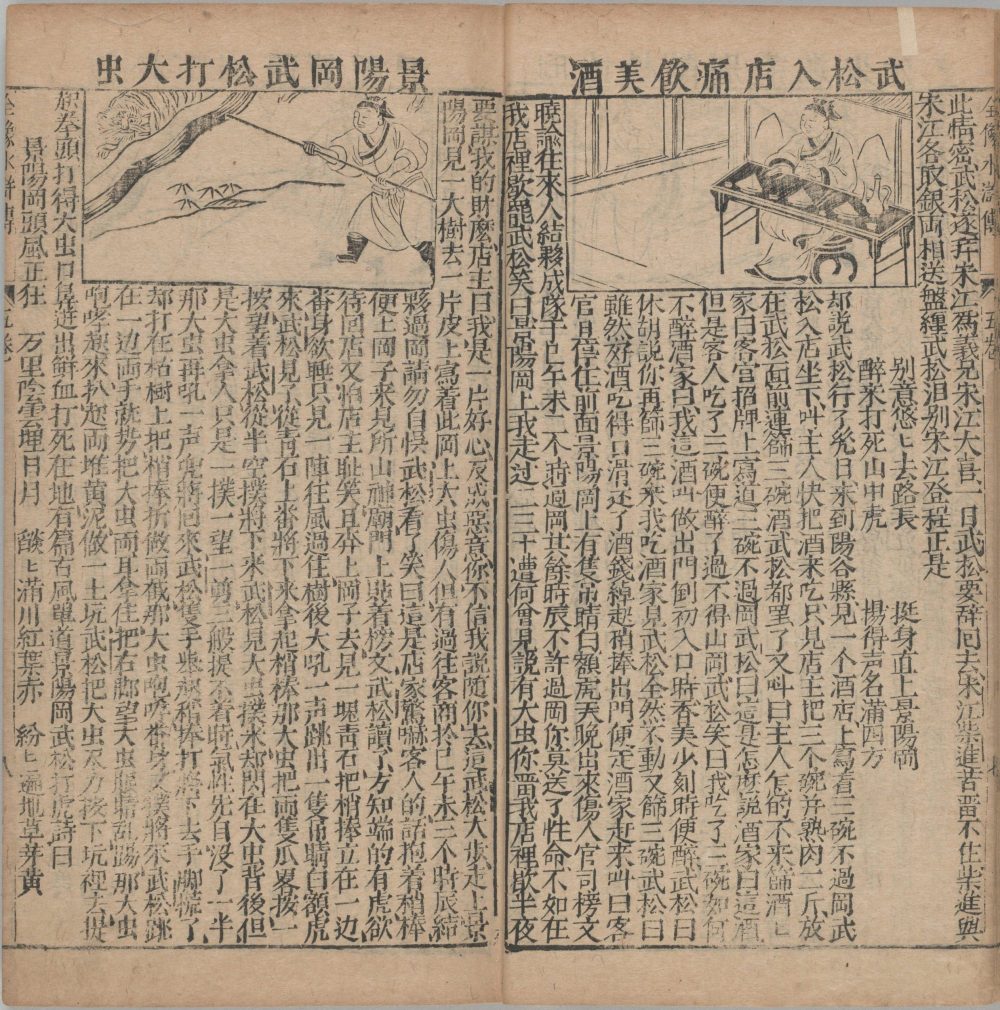 武松入店痛飲美酒
全像水滸傳
五卷
此情密武松遂拜宋江為義兄宋江大喜一日武松要辞回去宋江柴進苦畱不住柴進與
宋江各取銀両相送盤纏武松泪別宋江登程正是
別意悠匕去路長 挺身直上景陽岡
醉來打死山中虎 揚得声名滿四方
却說武松行了幾日來到陽谷縣見一个酒店上寫着三碗不過岡武
松入店坐下叫主人快把酒來吃只見店主把三个碗并熟肉二斤放
在武松面前連篩三碗酒武松都吃了又叫曰主人怎的不来篩酒匕
家曰客官招牌上寫道三碗不過岡武松曰這是怎麽說酒家曰這酒
但是客人吃了三碗便醉了過不得山岡武松笑曰我吃了三碗如何
不醉酒家曰我這酒叫做出門倒初入口時香美少刻時便醉武松曰
休胡說你再篩三碗來我吃酒家見武松全然不動又篩三碗武松曰
雖然好酒吃得口滑还了酒錢綽起稍棒出門便走酒家赶來叫曰客
官且停住前面景陽岡上有隻吊睛白額虎天晚出來傷人官司榜文
曉諭往來人結夥成隊于巳午未三个時過岡其餘時辰不許過岡你莫送了性命不如在
我店裡歇罷武松笑曰景陽岡上我走过二三十遭何曾見說有大虫你畱我店裡歇半夜
景陽岡武松打大虫
要謀我的財麽店主曰我是一片好心反成惡意你不信我說随你去這武松大步走上景
陽岡見一大樹去一片皮上寫着此岡上大虫傷人但有過往客商於巳午未三个時辰結
夥過岡請勿自悞武松看了笑曰這是店家驚嚇客人的話抱着稍棒
便上岡子来見所山神廟門上貼着榜文武松讀了方知端的有虎欲
待回店又怕店主耻笑且奔上岡子去見一塊青石把梢棒立在一边
番身欲睡只見一陣狂風過往樹後大吼一声跳出一隻吊睛白額虎
來武松見了從青石上番將下來拿起梢棒那大虫把両隻爪畧按一
按望着武松從半空撲將下來武松見大虫撲來却閃在大虫背後但
是大虫拿人只是一撲一望一剪三般提不着時氣性先自没了一半
那大虫再吼一声番將回來武松雙手掄起稍棒打將下去手脚慌了
却打在枯樹上把梢捧折做両截那大虫咆哮番身又撲將來武松跳
在一边両手就势把大虫両耳拿住把右脚望大虫眼睛乱踢那大虫
咆哮起來扒起両堆黄泥做一土坑武松把大虫尽力按下坑裡去提
起拳頭打得大虫口鼻迸出鮮血打死在地有篇古風單道景陽岡武松打虎詩曰
景陽岡頭風正狂 万里陰雲埋日月 燄匕滿川紅葉赤 紛匕遍地草芽黄
全像水滸傳
五卷
八